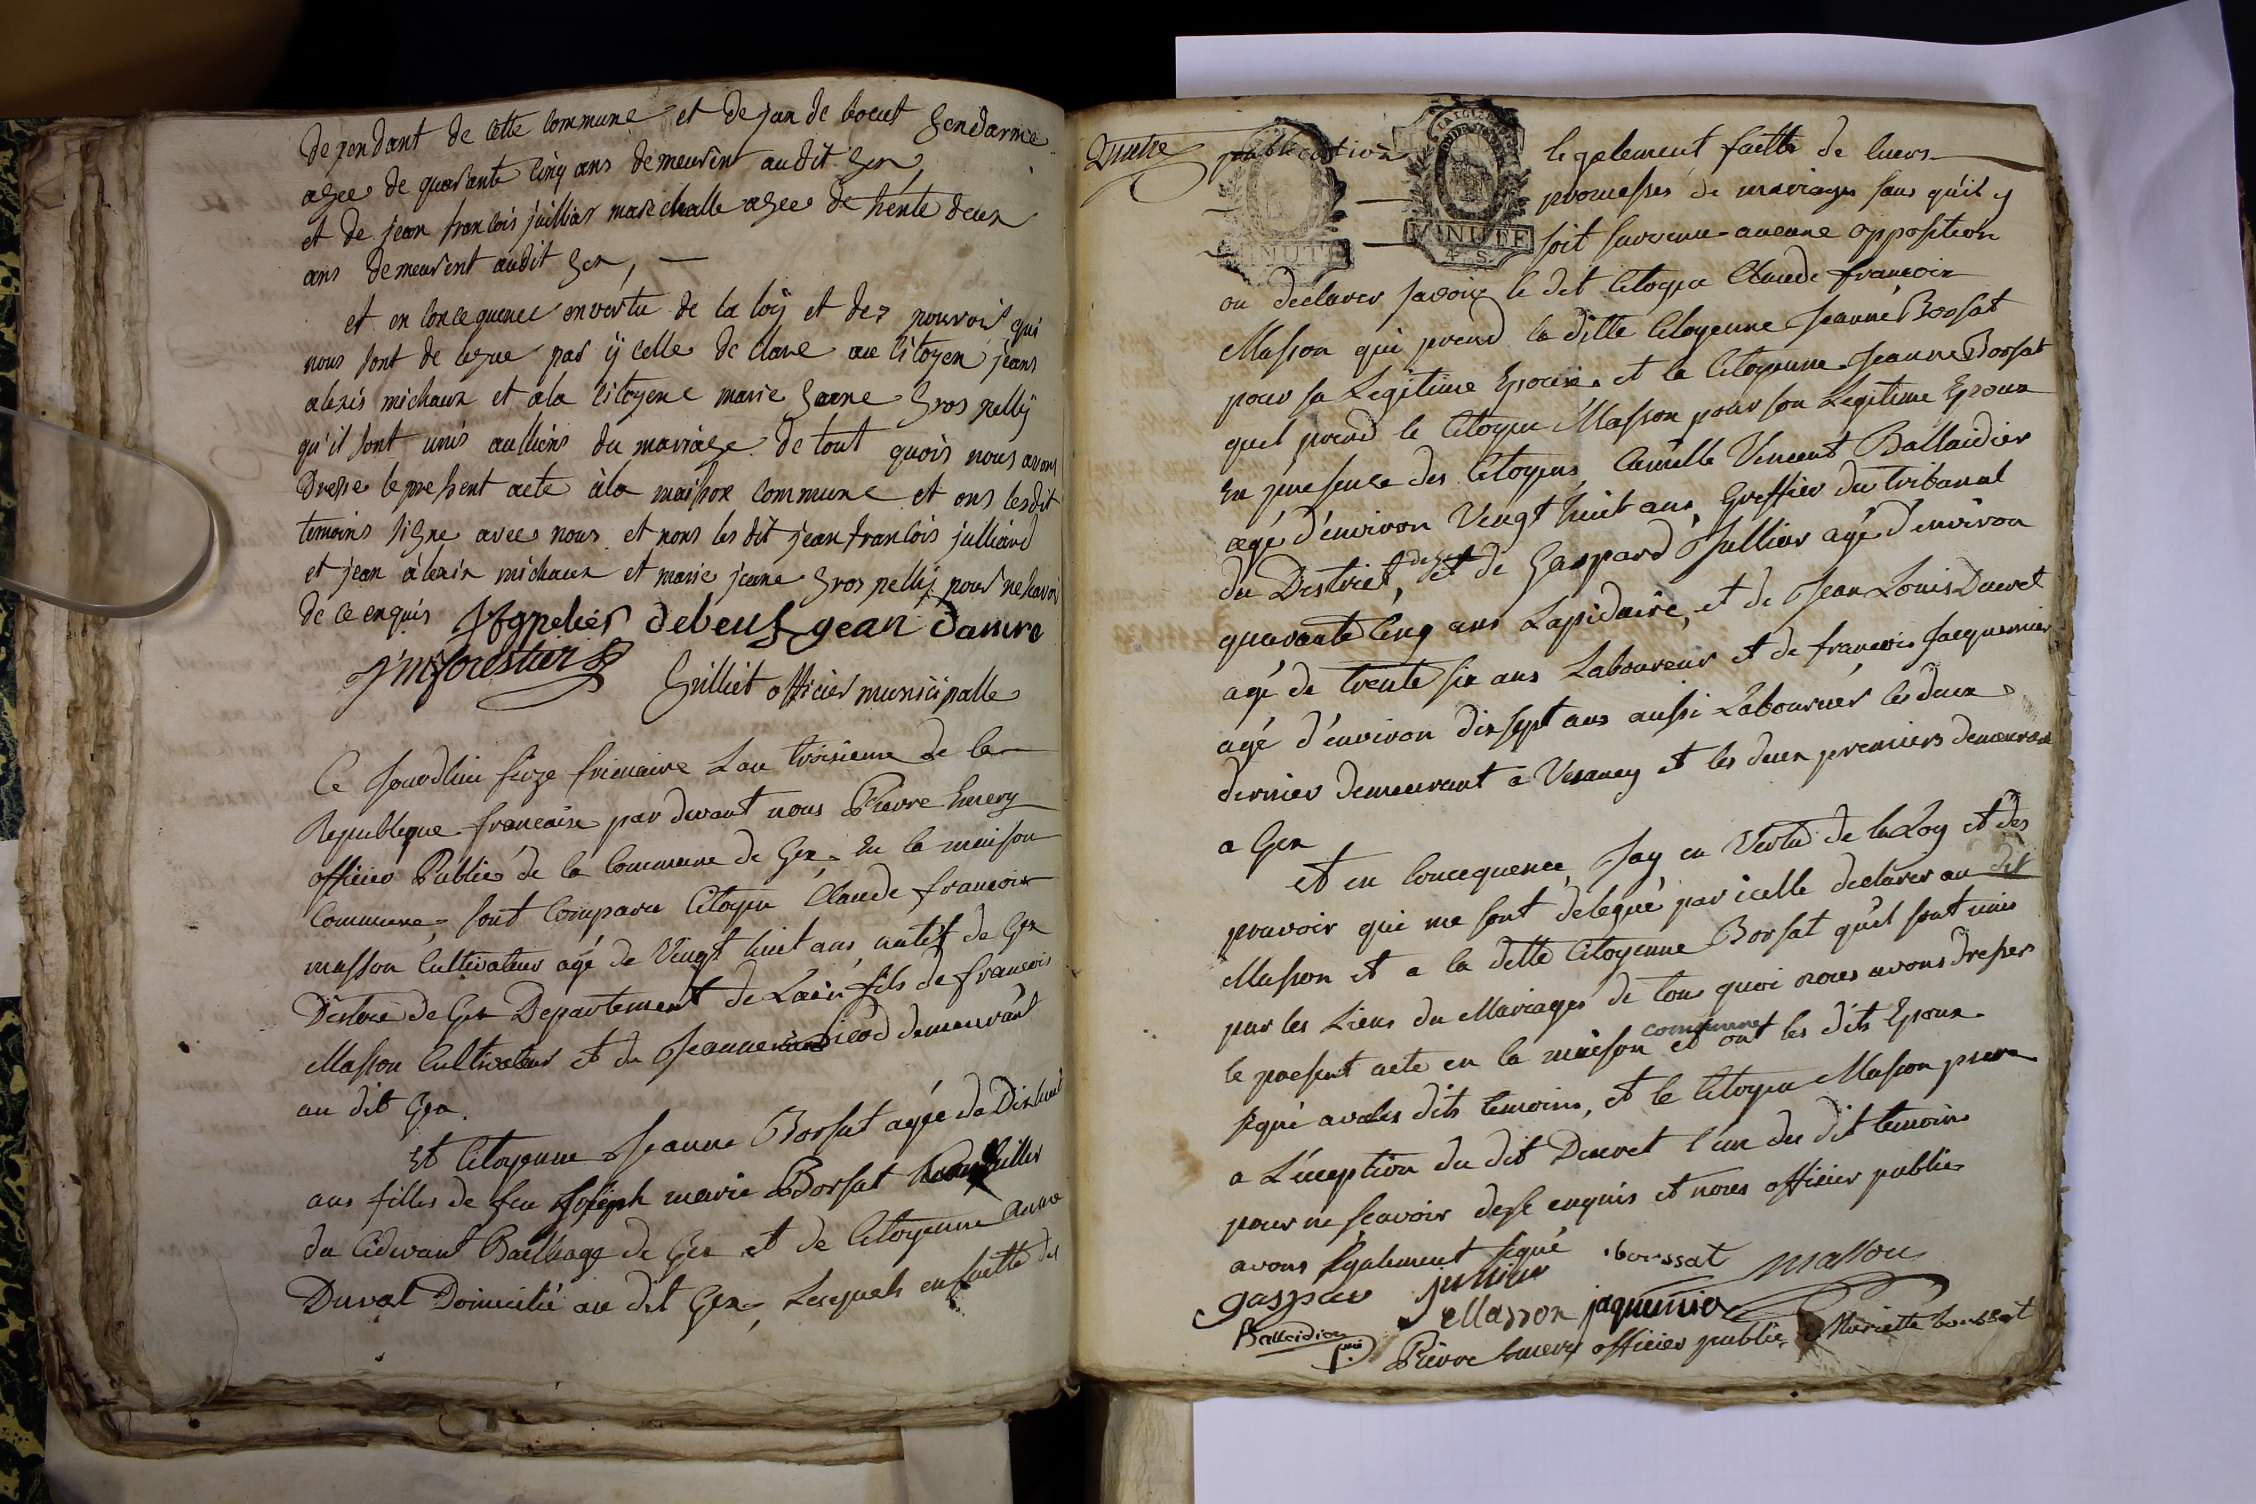 dependant de cette commune et de jan de boeut gendarme
agee de quarante cinq ans demeurent audit gex,
et de jean francois juilliar marechalle agee de trente deux
ans demeurent audit gex, —
et en concequence en vertu de la loij et des pouvoir qui
nous sont de legue par ij celle declare au citoyen jeans
alexis michaux et a la citoyene marie jeane gros pellij
qu'il sont unis au liens du mariage de tout quois nous avons
dresse le present acte à la maison commune et ons lesdit
temoins signe avec nous et nons les dit jean francois julliard
et jean alexis michaux et marie jeane gros pellij pour ne savoir
de ce enquis debeuf jean
forestier
Gilliet officier municipalle
Ce Jourdhui seize frimaire Lan troisieme de la
Republique francaise par devant nous Pierre Emery
officier Public de la Commune de Gex En la maison
Commune, sont comparu Citoyen Claude francois
masson Cultivateur agé de Vingt huit ans, natif de Gex
District de Gex Departement de Lain fils de francois
Masson Cultivateur et de Jeanne demeurant
au dit Gex.
Et Citoyenne Jeanne Borsat agée de Dixhuit
ans filles de feu Joseph marie Borsat
du cidevant Bailliage de Gex et de Citoyenne anne
Duval Domicilié au dit Gex, Lesquels ensuitte des
Quatre publication legalement faitte de leurs
promesses de mariages sans qu'il y
MINUTE MINUTE soit survenu aucune opposition
4 S.
ou declarer savoir le dit Citoyen Claude francoix
Masson qui prend la ditte Citoyenne Jeanne Borsat
pour sa Legitime Epouse et la Citoyenne Jeanne Borsat
quel prend le Citoyen Masson pour son Legitime Epoux
En presence des Citoyens Camille Vincent Ballaidier
agé d'environ Vingt huit ans, Greffier du tribunal
du District, de Gaspard Jullier agé d'environ
quarante cinq ans Lapidaire, et de Jean Louis Ducret
agé de trente six ans Laboureur et de francois Jacquemier
agé d'environ dix sept ans aussi Laboureur les deux
dernier demeurant a Vesancy et les deux premiers demeurant
a Gex
et en Concequence, Jay en Vertu de la Loy et des
pouvoir qui me sont delegué par icelle declarer au dit
Masson et a la ditte Citoyenne Borsat qu'il sont unis
par les Liens du Mariages de tous quoi nous avons dresser
le present acte en la maison commune et ont les dits Epoux
signé avec les dits temoins, et le Citoyen Masson pere
a L'exeption du dit Ducret l'un des dit temoins
pour ne scavoir de ce enquis et nous officier public
avons Egalement signé borssat masson
gaspar jullier
Masson jaquemier
Ballaidier
Pierre Emery officier public Mariette borssat